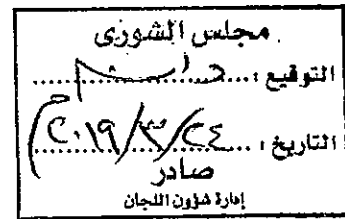 مجلس الشورى
التوقيع :
التاريخ : ٢٠١٩/٣/٢٤
صادر
إدارة شؤون اللجان